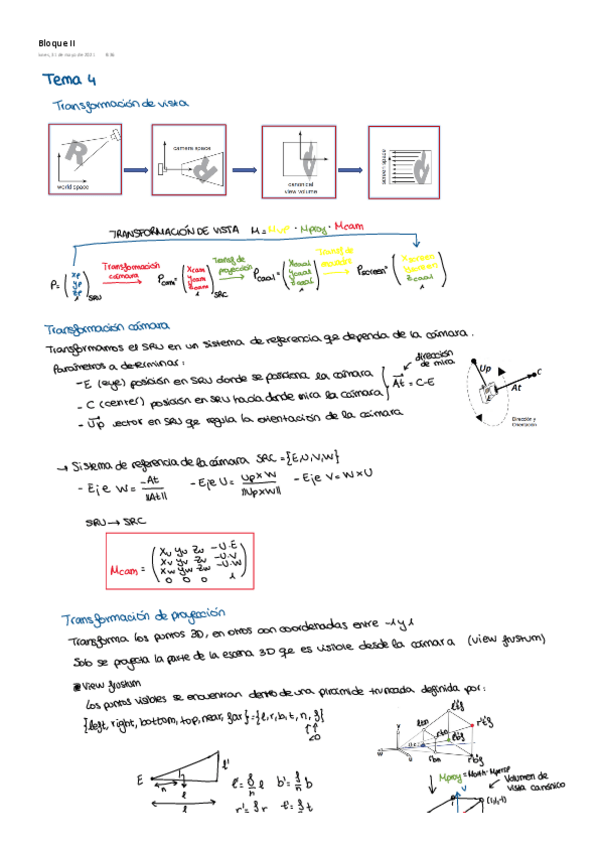 Bloque II
Tema 4
Transformación de vista
world space
camera space
canonical
view volume
screen space
TRANSFORMACIÓN DE VISTA M = Mvp · Mproy · Mcam
Transformación
cámara
Transf de
proyección
Transf de
P = (xp yp zp 1) SRU
Pcam = (xcam ycam zcam 1) SRC
Pcaal = (xcaal ycaal zcaal 1)
Pscreen = (xscreen yscreen zcaal 1)
Transformación cámara
Transformamos el SRU en un sistema de referencia que dependa de la cámara.
Parámetros a determinar:
- E (eye) posición en SRU donde se posiciona la cámara
- C (center) posición en SRU hacia donde mira la cámara
At = C-E
dirección
de mira
- Up vector en SRU que regula la orientación de la cámara
Up
C
E
At
Dirección y
Orientación
→ Sistema de referencia de la cámara SRC = {E,U,V,W}
- Eje W = -At / ||At|| - Eje U = Up x W / ||Up x W|| - Eje V = W x U
SRU → SRC
Mcam = (xu yu zu -U·E
xv yv zv -U·V
xw yw zw -U·W
0 0 0 1)
Transformación de proyección
Transforma los puntos 3D, en otros con coordenadas entre -1 y 1
Solo se proyecta la parte de la escena 3D que es visible desde la cámara (view frustum)
View frustum
Los puntos visibles se encuentran dentro de una pirámide truncada definida por:
{left, right, bottom, top, near, far} = {l, r, b, t, n, f}
<0
E
n
l
f
l'
l' = f/n l b' = f/n b
r' = f r t' = f t
l't'f
r't'f
ltn
rtn
l'b'f
rbn
r'b'f
Mproy = Morth · Mpersp
Volumen de
vista canónico
V
(1,1,-1)